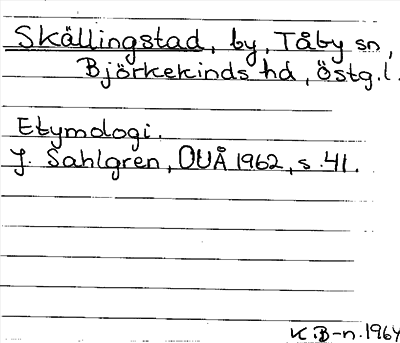 Skällingstad, by, Tåby sn,
Björkekinds hd, Östg.l.
Etymologi.
J. Sahlgren, OUÅ 1962, s. 41.
K.B-n. 1964